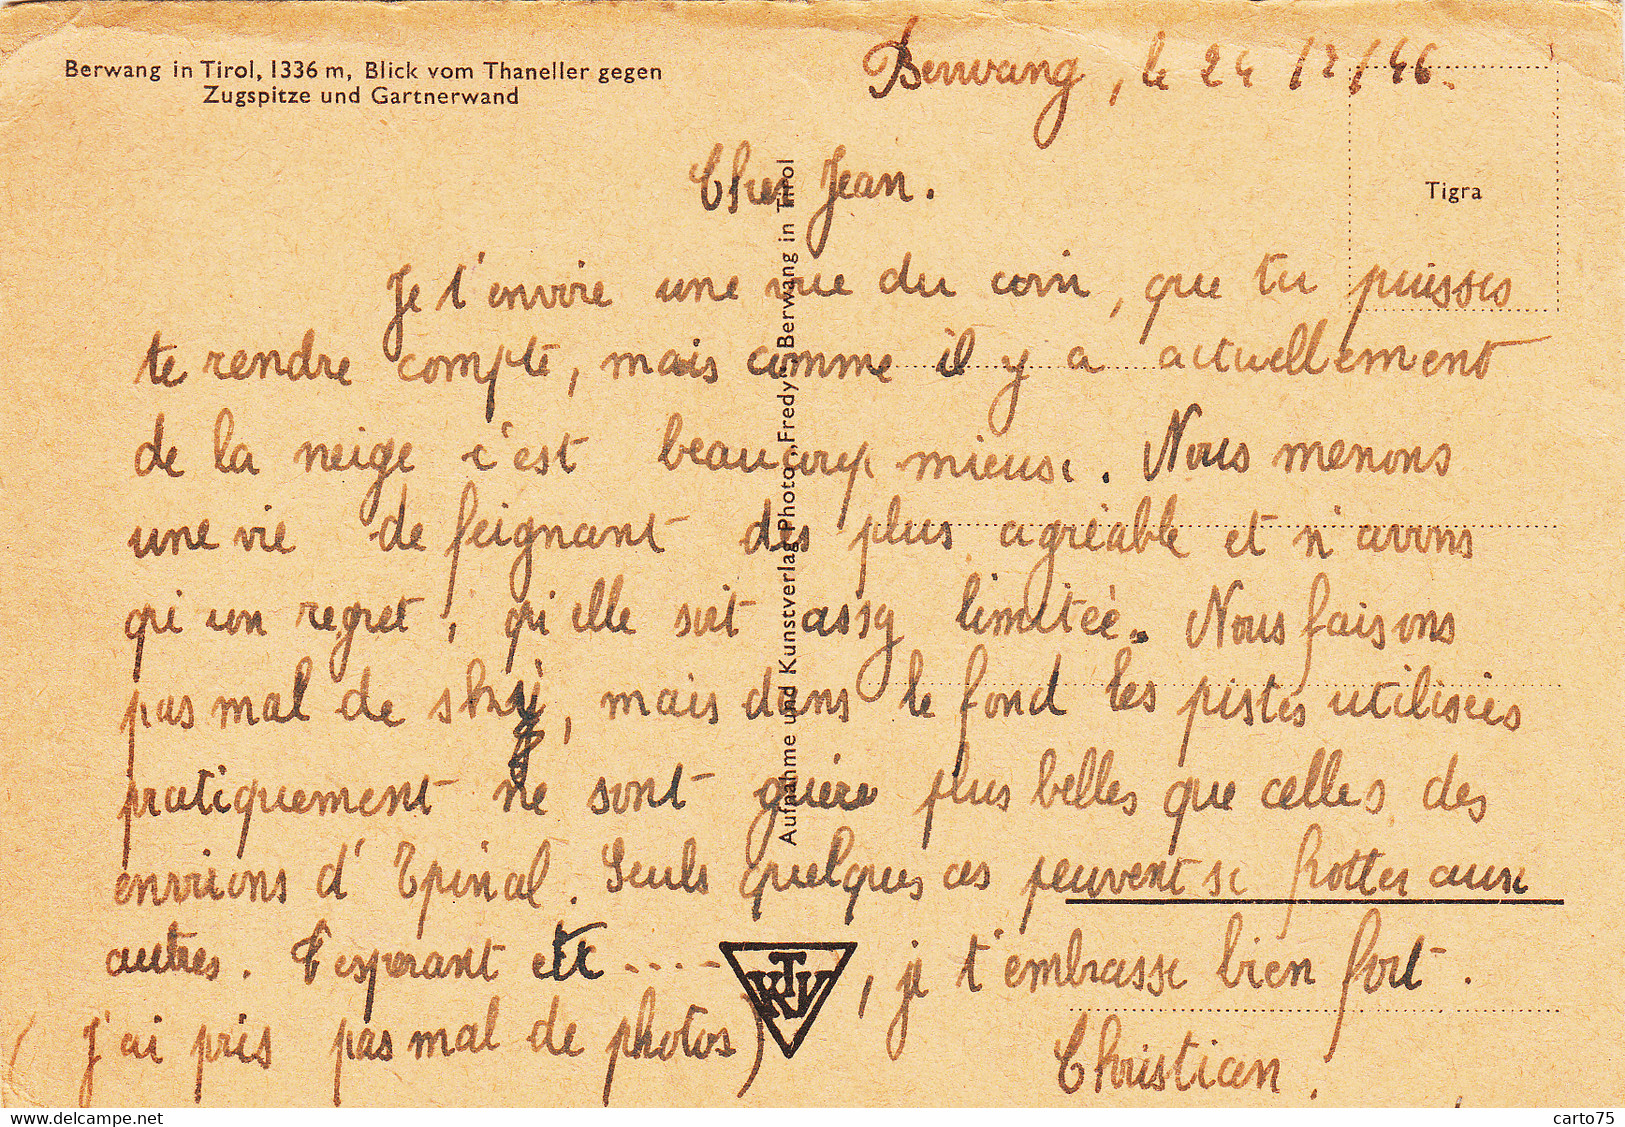 Berwang in Tirol, 1336 m, Blick vom Thaneller gegen
Zugspitze und Gartnerwand
Berwang, le 24/2/46.
Tigra
Cher Jean.
Je t'envoie une vue du coin, que tu puisses
te rendre compte, mais comme il y a actuellement
de la neige c'est beaucoup mieux. Nous menons
une vie de feignant des plus agréable et n'avons
qu'un regret, qu'elle soit assy limitée. Nous faisons
pas mal de ski, mais dans le fond les pistes utilisées
pratiquement ne sont guère plus belles que celles des
environs d'Epinal. Seuls quelques as peuvent se frotter aux
autres. T'esperant etc ...., je t'embrasse bien fort.
(J'ai pris pas mal de photos)
Christian.
Aufnahme und Kunstverlag Photo „Fredy“ Berwang in Tirol
KTV
delcampe.net
carto75